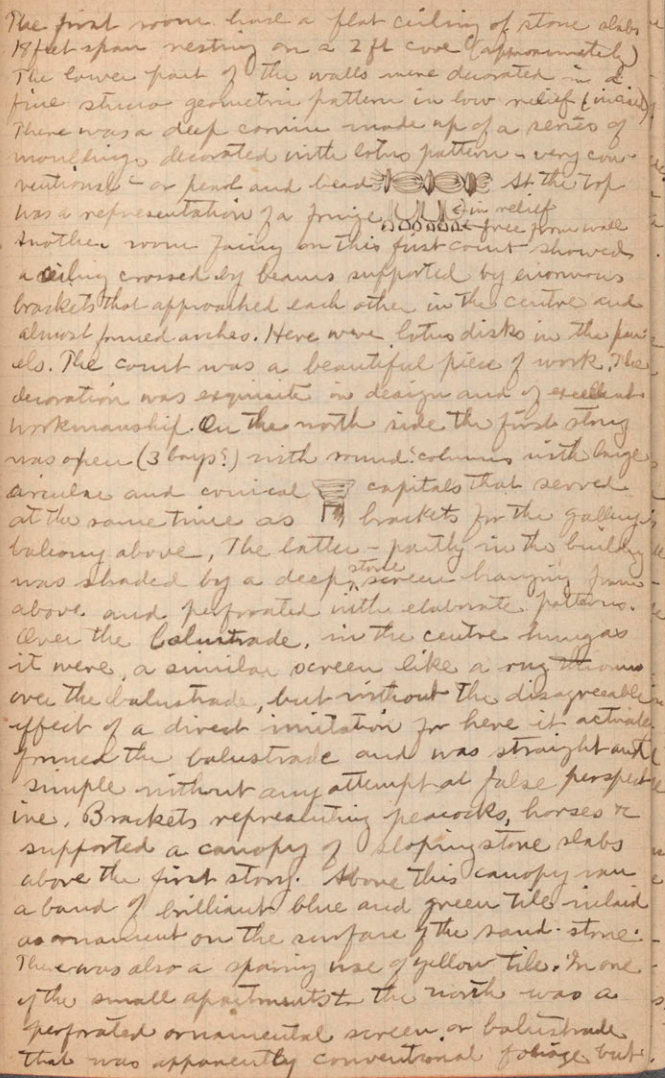 The first room had a flat ceiling of stone slabs
18 feet span resting on a 2 ft cove (approximately)
The lower part of the walls were decorated in a
fine stucco geometric pattern in low relief (incised)
There was a deep cornice made up of a series of
mouldings decorated with lotus pattern - very con-
ventional - or pearl and bead At the top
was a representation of a fringe in relief
free from wall
Another room facing on this first court showed
a ceiling crossed by beams supported by enormous
brackets that approached each other in the centre and
almost formed arches. Here were lotus disks in the pan-
els. The court was a beautiful piece of work. The
decoration was exquisite in design and of excellent
workmanship. On the north side the first story
was open (3 bays?) with round columns with large
circular and conical capitals that served
at the same time as brackets for the gallery
balcony above. The latter - partly in the building
was shaded by a deep stone screen hanging from
above and perforated with elaborate patterns.
Over the balustrade, in the centre hung as
it were, a similar screen like a rug thrown
over the balustrade, but without the disagreeable
effect of a direct imitation for here it actually
formed the balustrade and was straight and
simple without any attempt at false perspect-
ive. Brackets representing peacocks, horses &c
supported a canopy of sloping stone slabs
above the first story. Above this canopy ran
a band of brilliant blue and green tile inlaid
as ornament on the surface of the sand-stone.
There was also a sparing use of yellow tile. In one
of the small apartments to the north was a
perforated ornamental screen or balustrade
that was apparently conventional foliage but